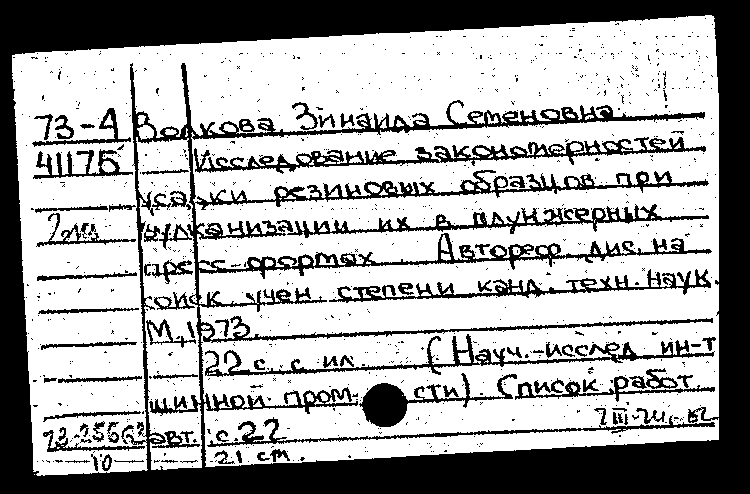 73-4 Волкова, Зинаида Семеновна.
41175 Исследование закономерностей
усадки резиновых образцов при
2 экз вулканизации их в плунжерных
пресс-формах Автореф. дис. на
соиск. учен. степени канд. техн. наук.
М., 1973.
22 с. с ил. (Науч.-исслед. ин-т
шинной пром-сти). Список работ
авт.: с.22
10 21 см.